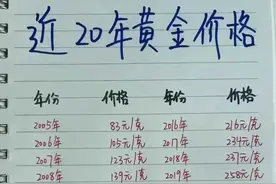 近20年黄金价格
年份 价格 年份 价格
2005年 83元/克 2016年 216元/克
2006年 105元/克 2017年 234元/克
2007年 123元/克 2018年 237元/克
2008年 139元/克 2019年 258元/克